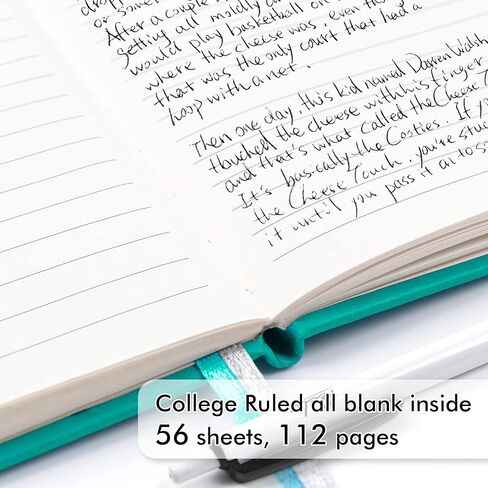 or some
After a couple
getting all moldy and
would play basketball on
where the cheese was, even tho
that was the only court that had a
hoop with a net.
Then one day, this kid named Darren Walsh
touched the cheese with his finger
and that's what called the Cheese T
It's basically the Cooties. If y
the Cheese Touch, you're stuc
it until you pass it on to so
College Ruled all blank inside
56 sheets, 112 pages